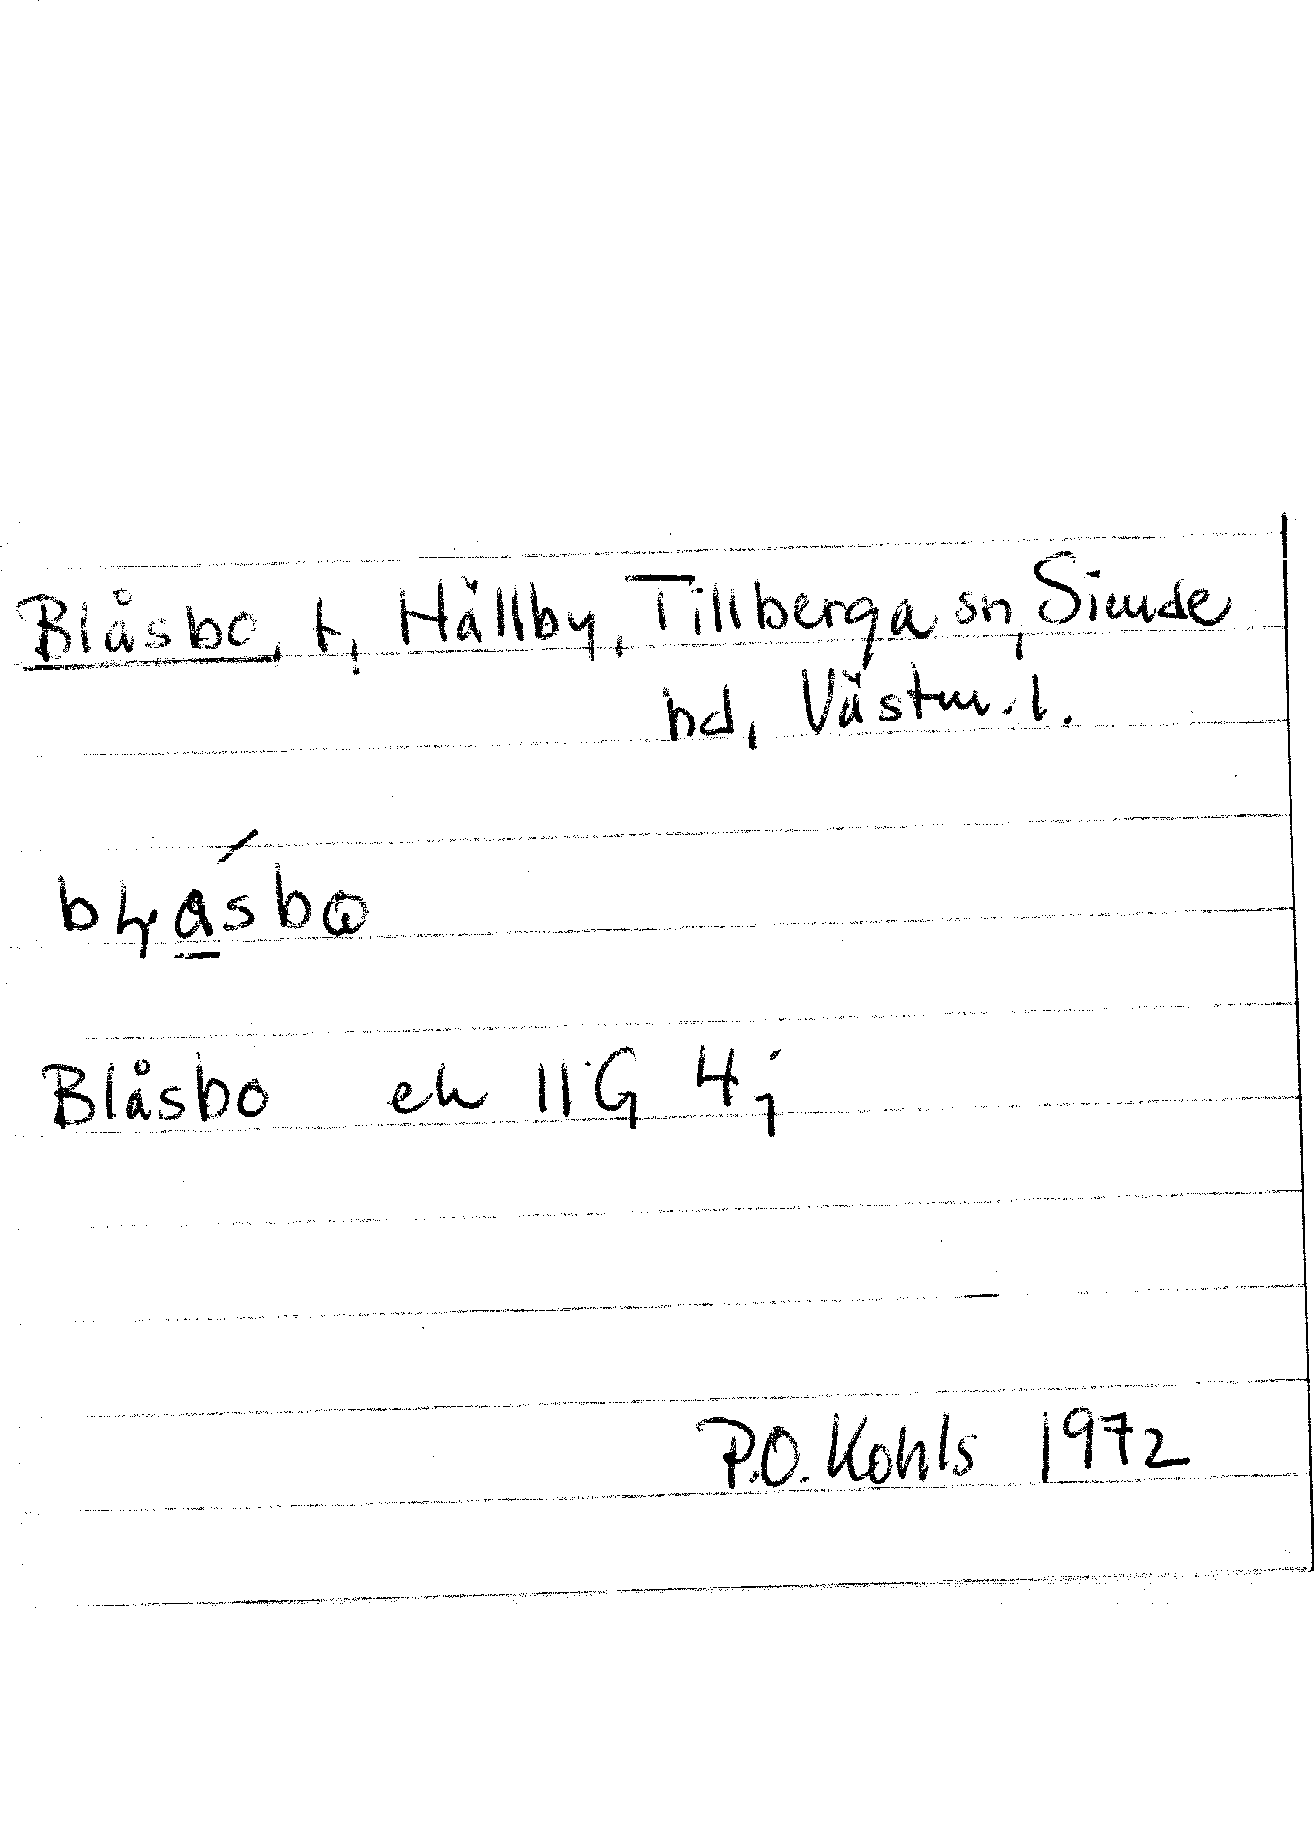 Blåsbo, t, Hällby, Tillberga sn, Siende
hd, Västm. l.
Blåsbo ek 11G 4j
P.O. Kohls 1972